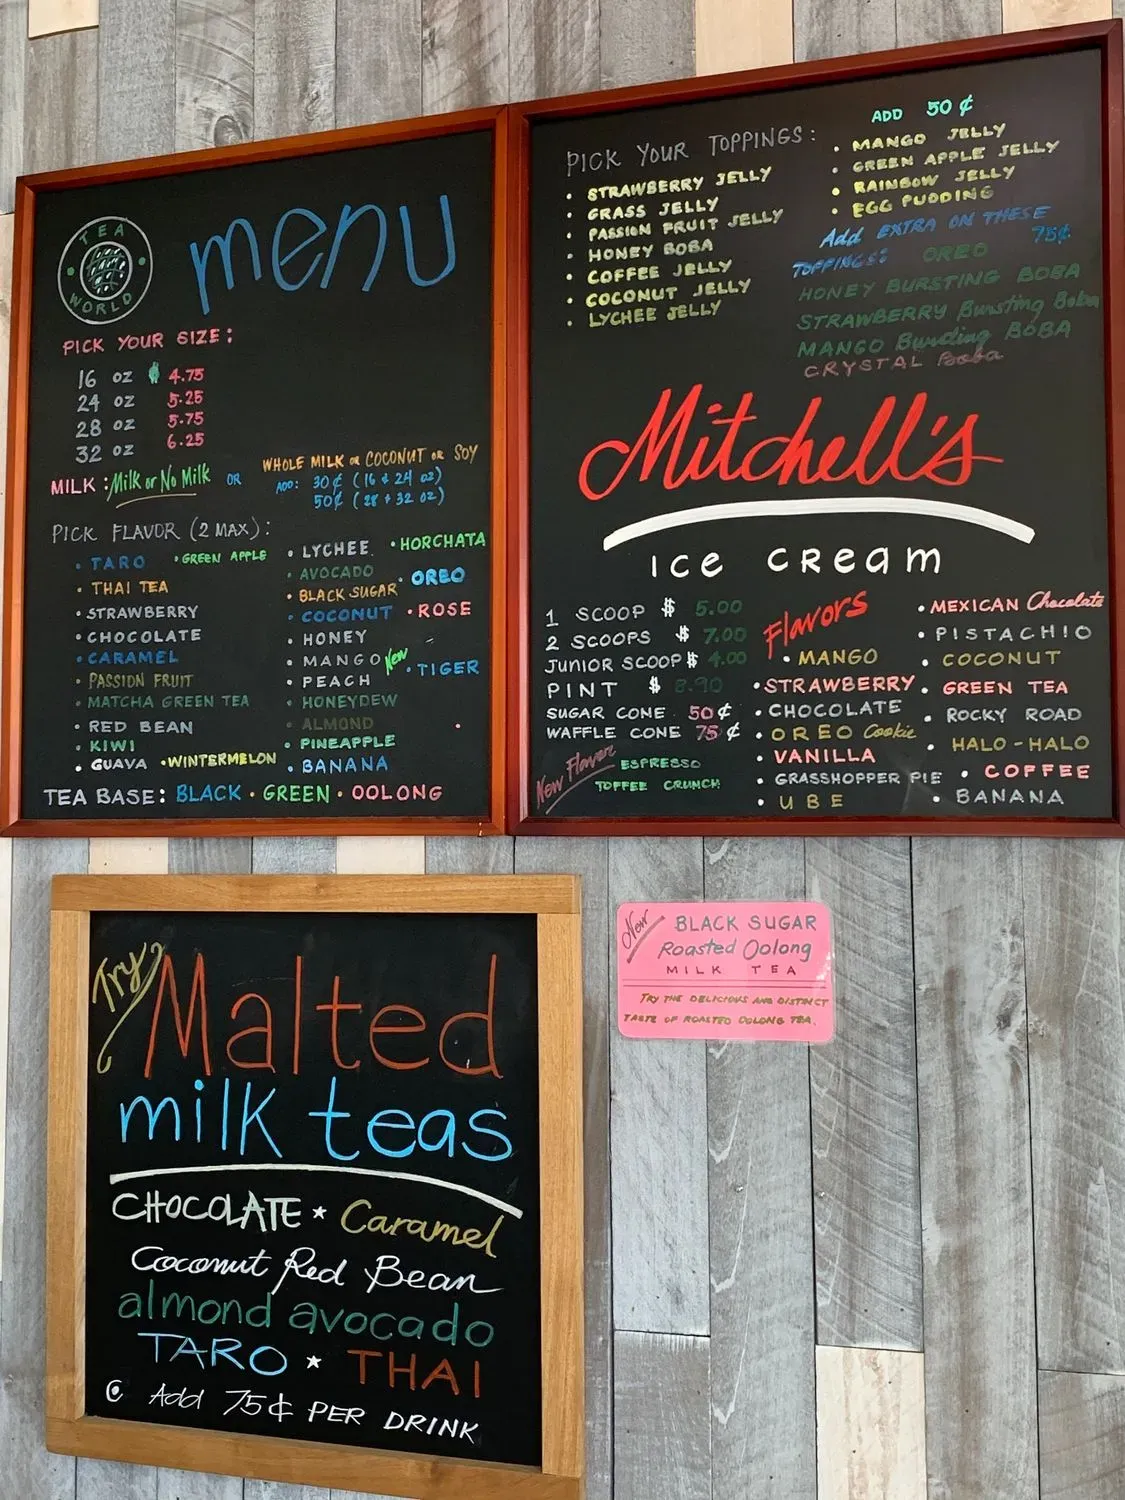 TEA
WORLD
menu
PICK YOUR SIZE:
16 oz $ 4.75
24 oz 5.25
28 oz 5.75
32 oz 6.25
MILK: Milk or No Milk OR
WHOLE MILK or COCONUT or SOY
ADD: 30¢ (16 & 24 oz)
50¢ (28 + 32 oz)
PICK FLAVOR (2 MAX):
• TARO
• GREEN APPLE
• THAI TEA
• STRAWBERRY
• CHOCOLATE
• CARAMEL
• PASSION FRUIT
• MATCHA GREEN TEA
• RED BEAN
• KIWI
• GUAVA
• WINTERMELON
• LYCHEE
• AVOCADO
• BLACK SUGAR
• COCONUT
• HONEY
• MANGO
• PEACH
• HONEYDEW
• ALMOND
• PINEAPPLE
• BANANA
• HORCHATA
• OREO
• ROSE
New
• TIGER
TEA BASE: BLACK • GREEN • OOLONG
PICK YOUR TOPPINGS:
ADD 50¢
• STRAWBERRY JELLY
• GRASS JELLY
• PASSION FRUIT JELLY
• HONEY BOBA
• COFFEE JELLY
• COCONUT JELLY
• LYCHEE JELLY
• MANGO JELLY
• GREEN APPLE JELLY
• RAINBOW JELLY
• EGG PUDDING
Add EXTRA ON THESE
TOPPINGS: 75¢
OREO
HONEY BURSTING BOBA
STRAWBERRY Bursting Boba
MANGO Bursting BOBA
CRYSTAL Boba
Mitchell's
ICE CREAM
1 SCOOP $ 5.00
2 SCOOPS $ 7.00
JUNIOR SCOOP $ 4.00
PINT $ 8.90
SUGAR CONE 50¢
WAFFLE CONE 75¢
New Flavor
ESPRESSO
TOFFEE CRUNCH
Flavors
• MANGO
• STRAWBERRY
• CHOCOLATE
• OREO Cookie
• VANILLA
• GRASSHOPPER PIE
• UBE
• MEXICAN Chocolate
• PISTACHIO
• COCONUT
• GREEN TEA
• ROCKY ROAD
• HALO-HALO
• COFFEE
• BANANA
Try
Malted
milk teas
CHOCOLATE * Caramel
Coconut Red Bean
almond avocado
TARO * THAI
Add 75¢ PER DRINK
New
BLACK SUGAR
Roasted Oolong
MILK TEA
TRY THE DELICIOUS AND DISTINCT
TASTE OF ROASTED OOLONG TEA.